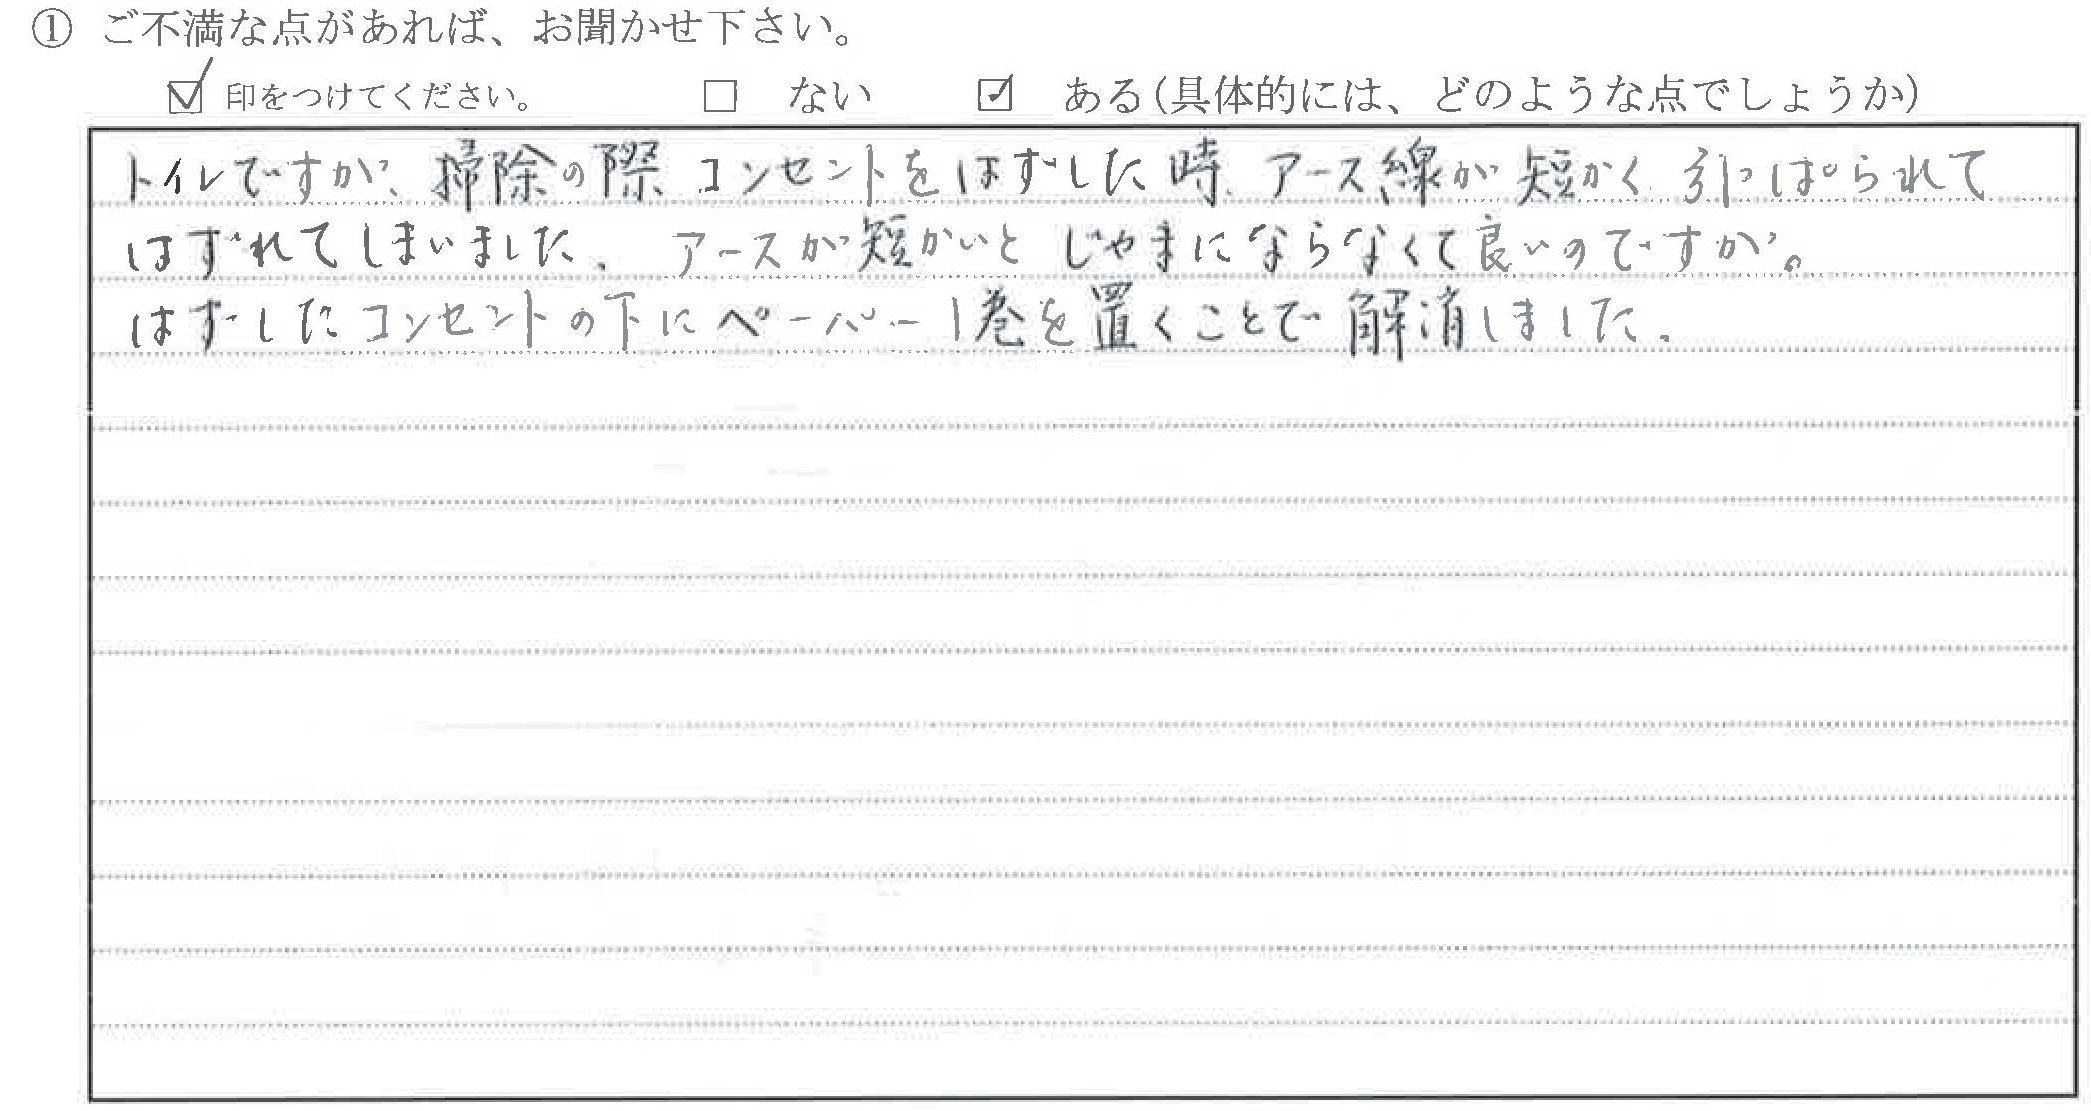 ① ご不満な点があれば、お聞かせ下さい。
☑ 印をつけてください。 □ ない ☑ ある(具体的には、どのような点でしょうか)
トイレですが、掃除の際 コンセントをはずした時、アース線が短かく 引っぱられて
はずれてしまいました、アースが短かいと じゃまにならなくて良いのですが。
はずしたコンセントの下にペーパー1巻を置くことで解消しました.